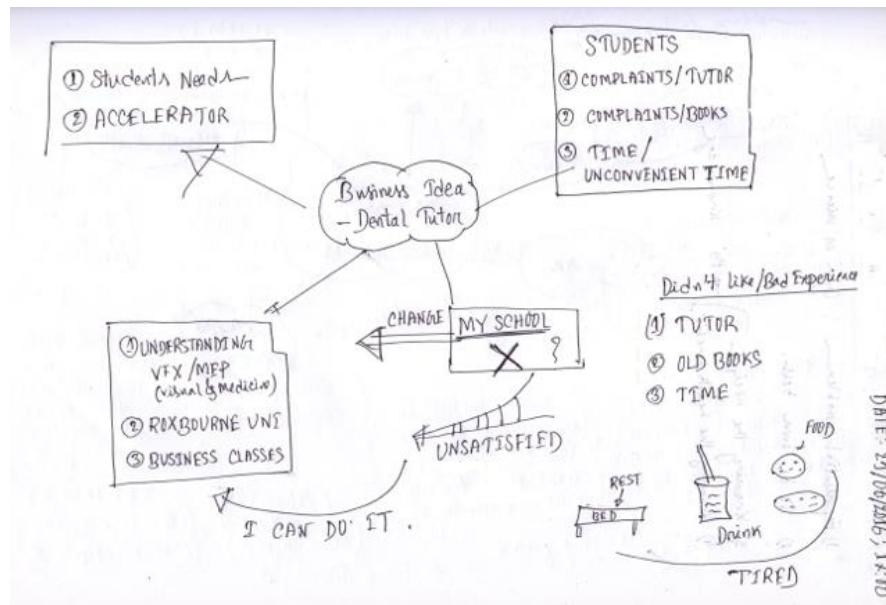 ① Students Needs
② ACCELERATOR
STUDENTS
① COMPLAINTS/TUTOR
② COMPLAINTS/BOOKS
③ TIME/
UNCONVENIENT TIME
Business Idea
- Dental Tutor
① UNDERSTANDING
VFX/MEP
(visual & medicine)
② ROXBOURNE UNI
③ BUSINESS CLASSES
CHANGE
MY SCHOOL
X ?
UNSATISFIED
I CAN DO IT.
Didn4 Like/Bad Experience
(1) TUTOR
② OLD BOOKS
③ TIME
REST
BED
Drink
FOOD
TIRED
DATE: